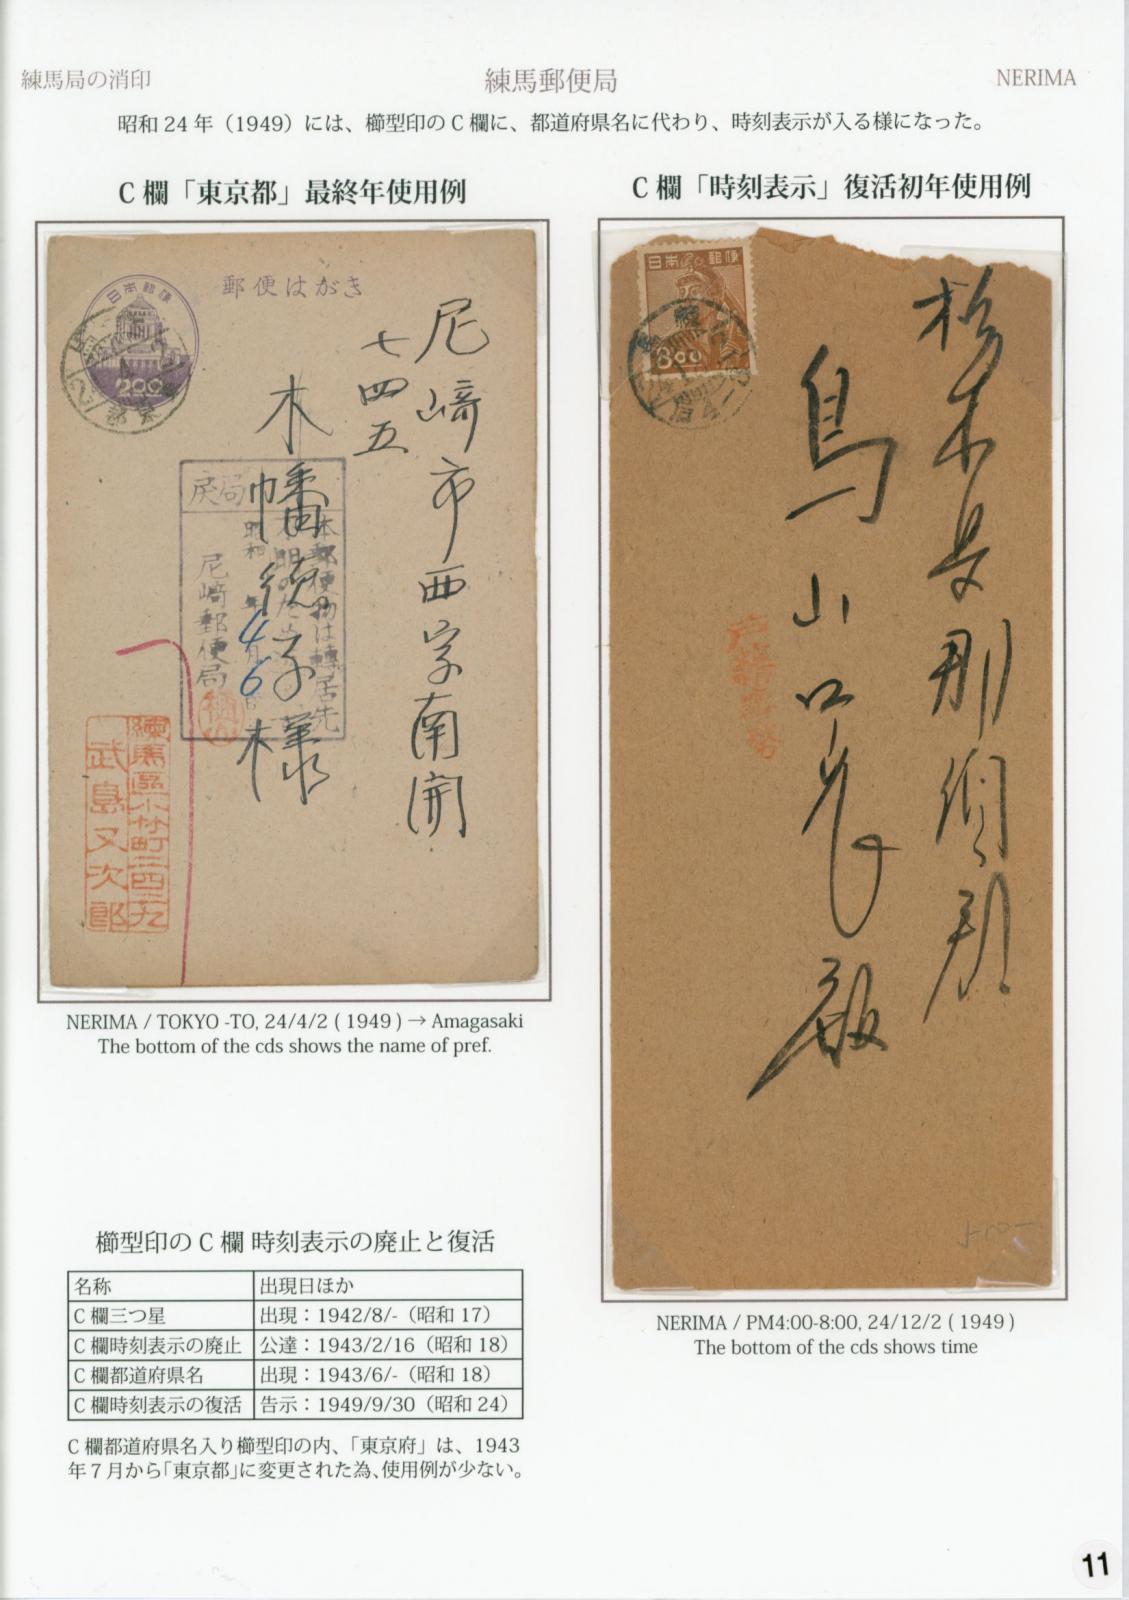 練馬局の消印
練馬郵便局
NERIMA
昭和 24 年（1949）には、櫛型印の C 欄に、都道府県名に代わり、時刻表示が入る様になった。
C 欄「東京都」最終年使用例
日本郵便
2.00
郵便はがき
尼崎市西字南開
七四五
木幡徳子様
戻局
本郵便物は轉居先
昭和 年 4月 6日
尼崎郵便局
練馬區小竹町二四二九
武島又次郎
NERIMA / TOKYO -TO, 24/4/2 ( 1949 ) → Amagasaki
The bottom of the cds shows the name of pref.
C 欄「時刻表示」復活初年使用例
日本郵便
8.00
練馬
栃木县那須郡
烏山口
NERIMA / PM4:00-8:00, 24/12/2 ( 1949 )
The bottom of the cds shows time
櫛型印の C 欄 時刻表示の廃止と復活
名称 出現日ほか
C 欄三つ星 出現：1942/8/-（昭和 17）
C 欄時刻表示の廃止 公達：1943/2/16（昭和 18）
C 欄都道府県名 出現：1943/6/-（昭和 18）
C 欄時刻表示の復活 告示：1949/9/30（昭和 24）
C 欄都道府県名入り櫛型印の内、「東京府」は、1943
年 7 月から「東京都」に変更された為、使用例が少ない。
11